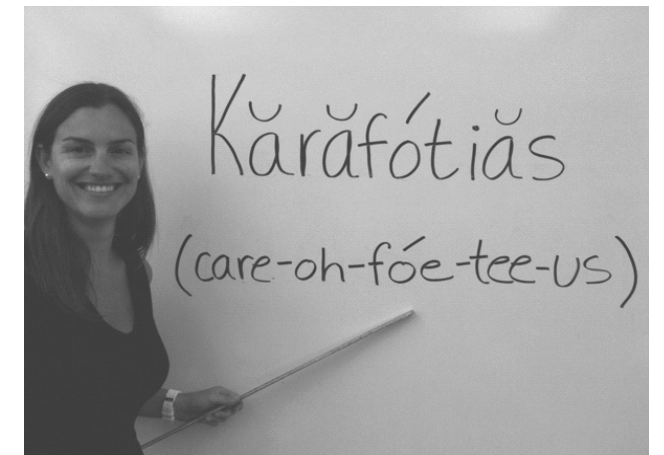 Kărăfótiăs
(care-oh-fóe-tee-us)